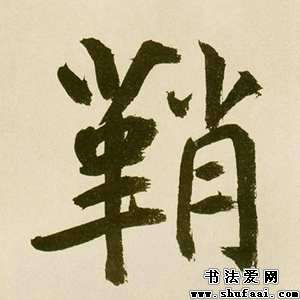 鞘
书法爱网
www.shufaai.com